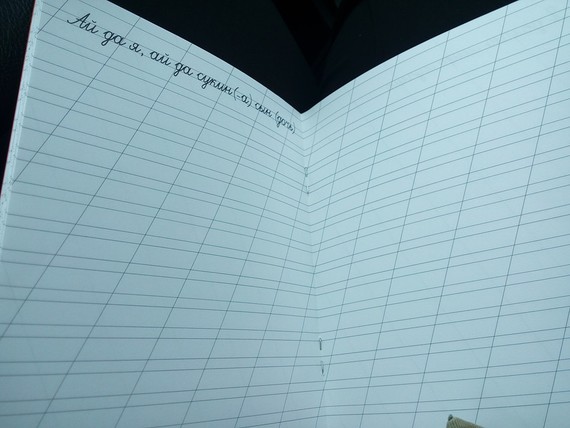 Ай да я, ай да сукин(-а) сын (дочь)